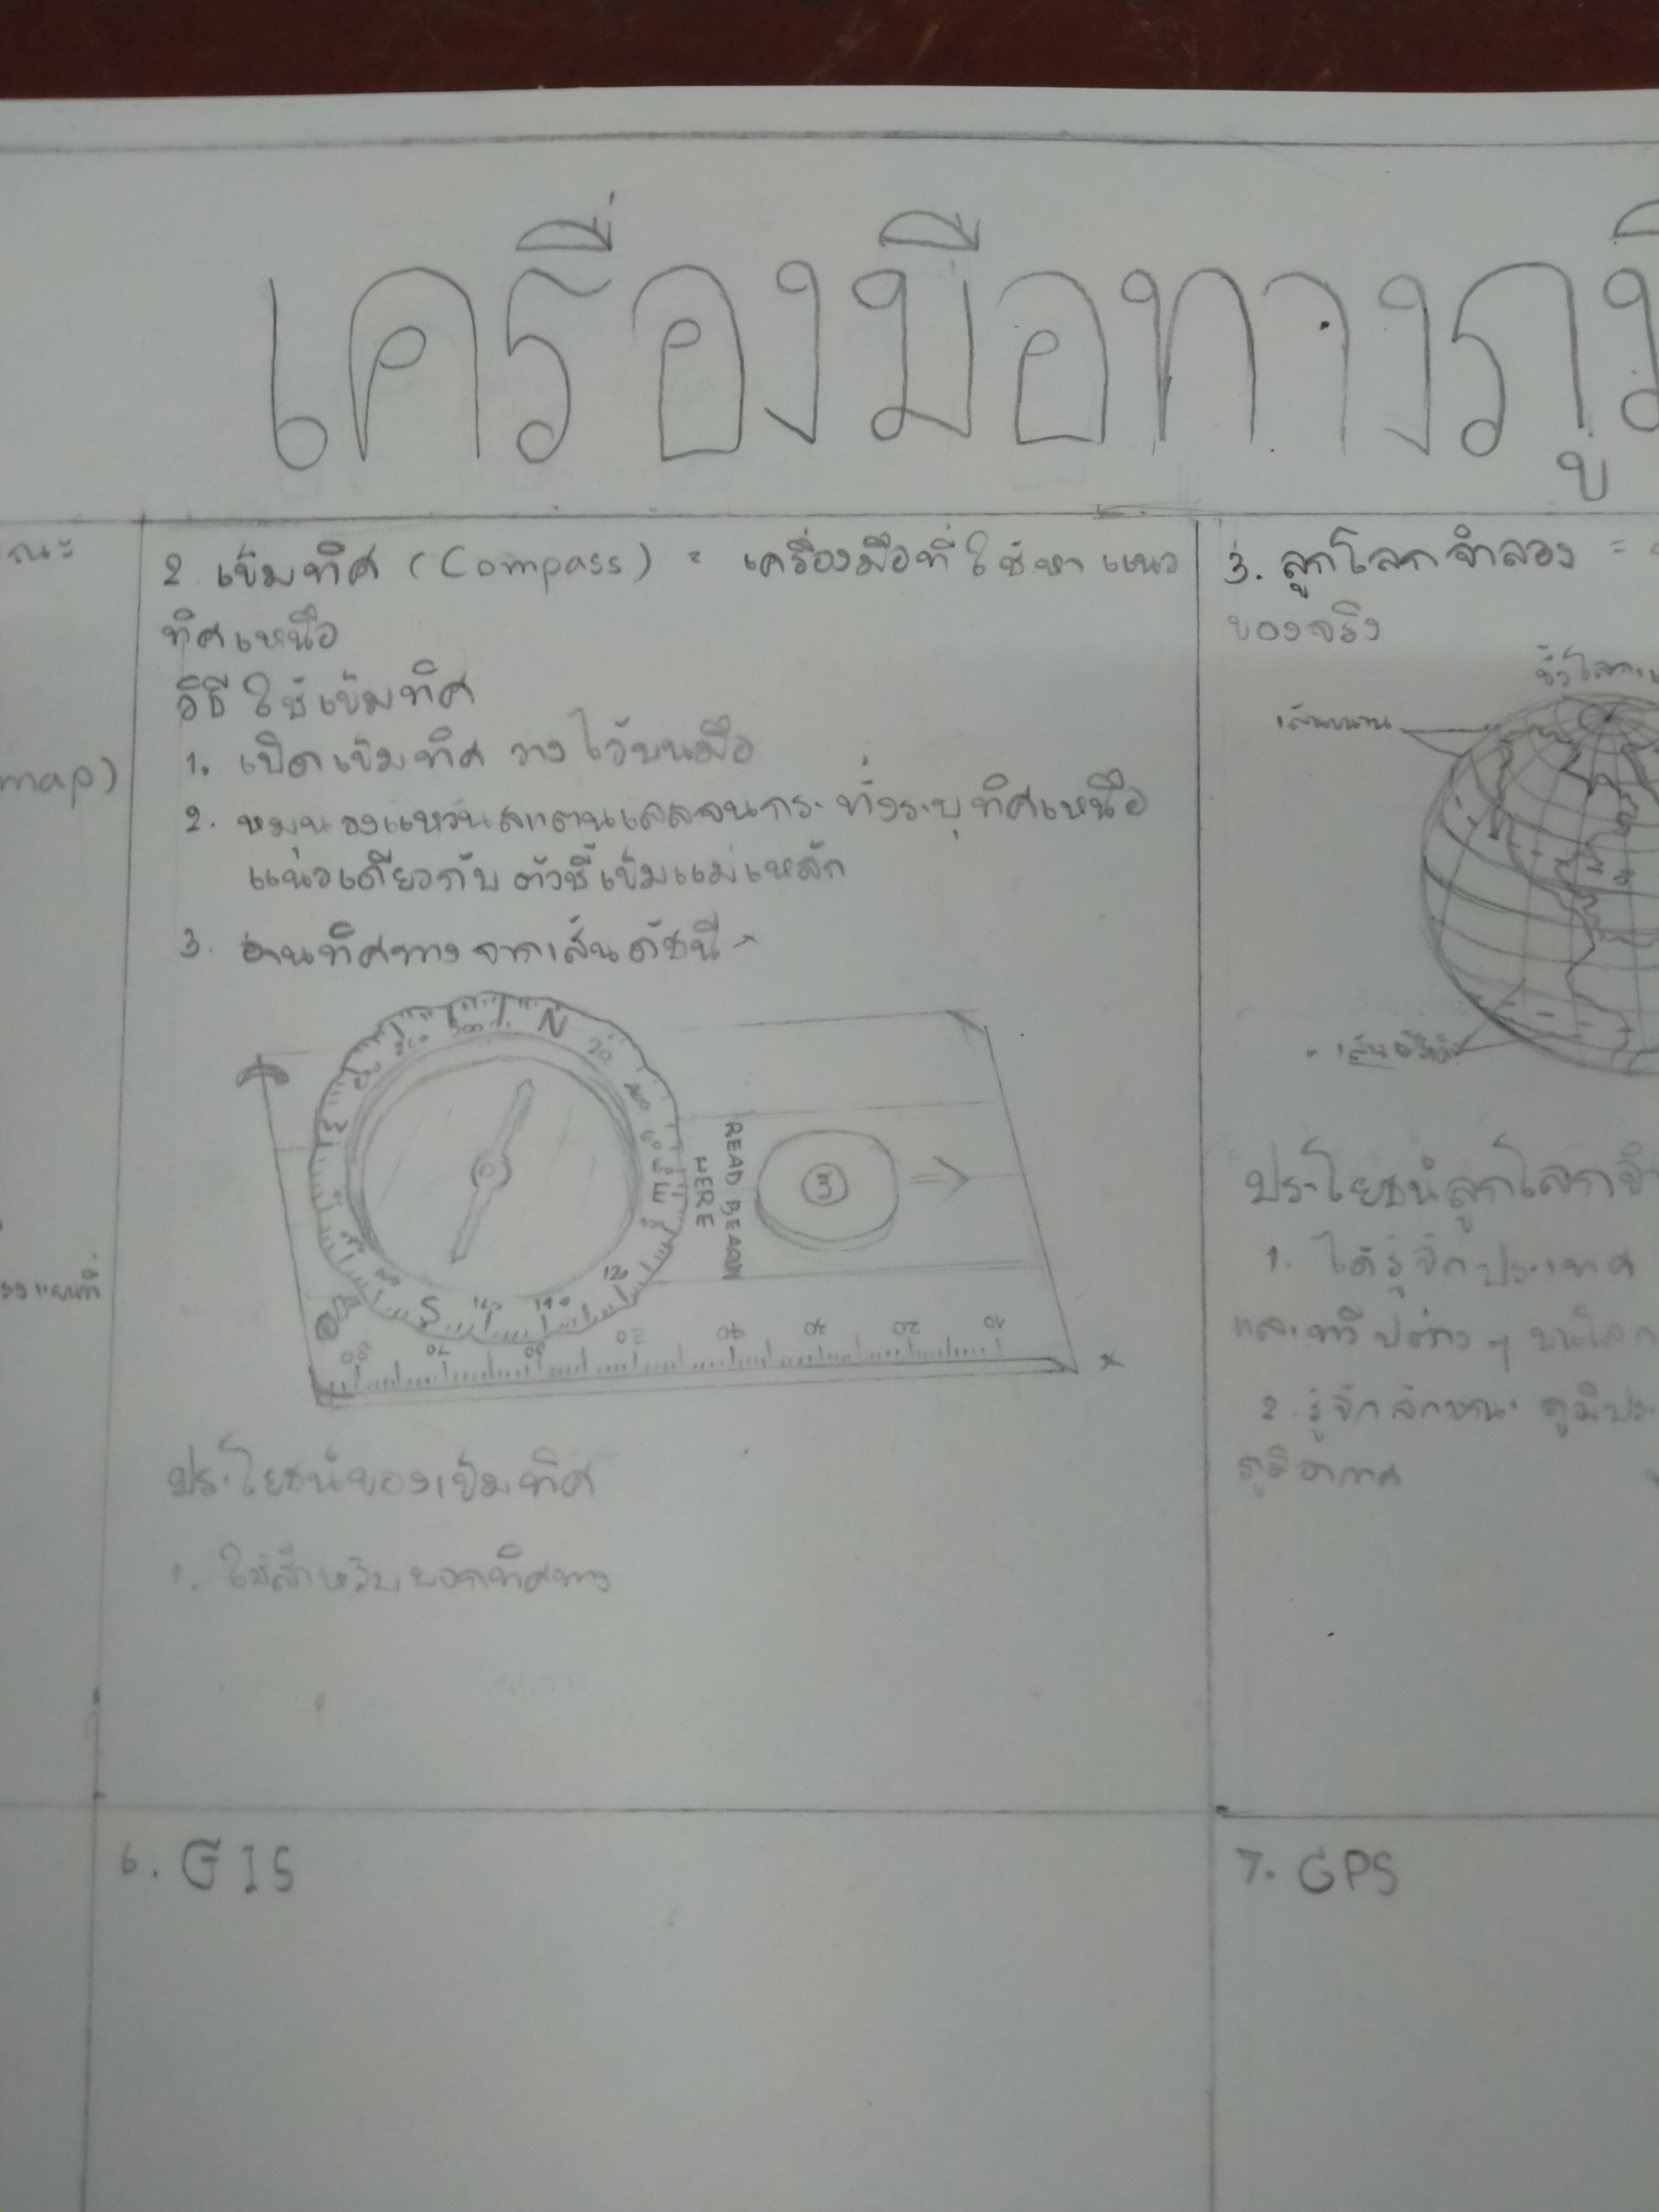 เครื่องมือทางภูมิ
2 เข็มทิศ (Compass) = เครื่องมือที่ใช้หาแนว
ทิศเหนือ
วิธีใช้เข็มทิศ
1. เปิดเข็มทิศ วางไว้บนมือ
2. หมุนวงแหวนสแตนเลสจนกระทั่งระบุทิศเหนือ
แนวเดียวกับตัวชี้เข็มแม่เหล็ก
3. อ่านทิศทางจากเส้นดัชนี
N
20
60
E
READ BEARIN
HERE
3
120
140
S
80
70
40
30
20
10
ประโยชน์ของเข็มทิศ
1. ใช้สำหรับบอกทิศทาง
3. ลูกโลกจำลอง =
ของจริง
ขั้วโลก
เส้นขนาน
ประโยชน์ลูกโลกจำ
1. ได้รู้จักประเทศ
และทวีปต่าง ๆ บนโลก
2. รู้จักลักษณะ ภูมิประ
ภูมิอากาศ
map)
6. GIS
7. GPS